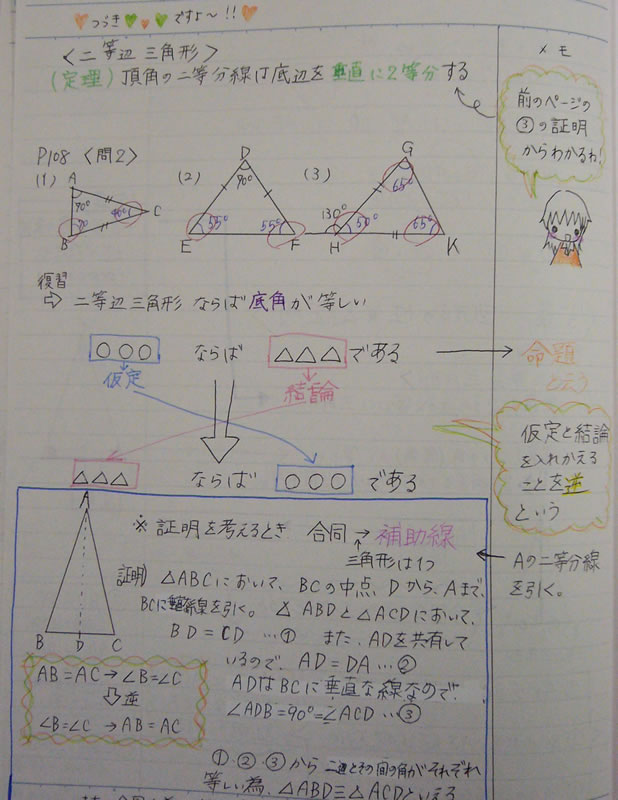 つづき ですよ〜!!
メモ
<二等辺三角形>
(定理) 頂角の二等分線は底辺を垂直に2等分する
前のページの
③の証明
からわかるね!
P108 <問2>
(1) A 70° 70 B 40° C
(2) D 70° 55° 55° E F
(3) G 65° 130° 50° 65° H K
復習
⇨ 二等辺三角形 ならば 底角が等しい
○○○ ならば △△△ である → 命題
と云う
仮定 結論
仮定と結論
を入れかえる
ことを逆
という
△△△ ならば ○○○ である
※ 証明を考えるとき 合同 → 補助線
三角形は1つ
Aの二等分線
を引く。
A B D C
証明) △ABCにおいて、BCの中点Dから、Aまで、
BCに線を引く。 △ABDと△ACDにおいて、
BD=CD …① また、ADを共有して
いるので、AD=DA …②
ADはBCに垂直な線なので
∠ADB=90°=∠ACD …③
AB=AC→∠B=∠C
⇩逆
∠B=∠C → AB=AC
①・②・③から 二辺とその間の角がそれぞれ
等しい為、△ABD≡△ACDといえる